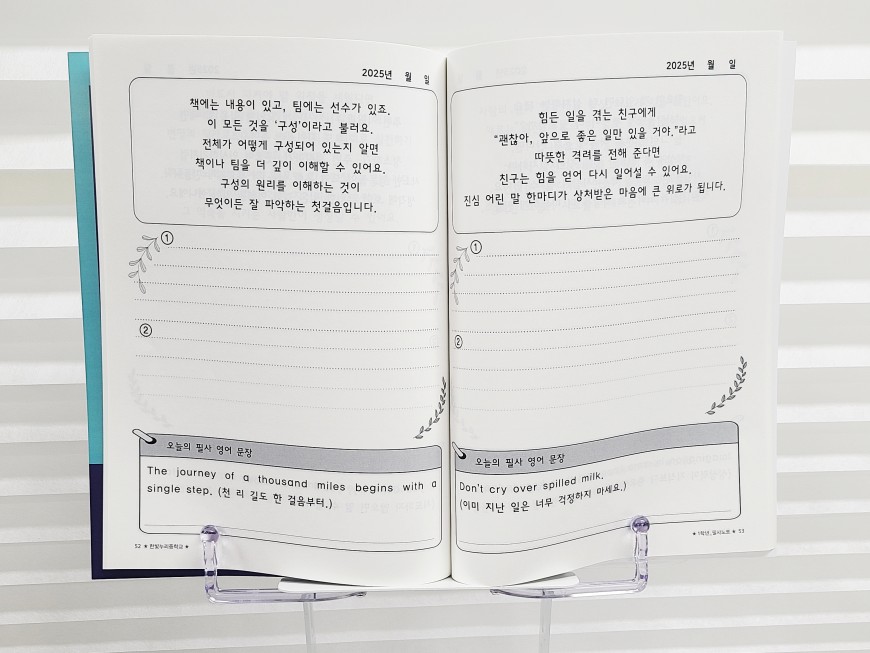 2025년 월 일
책에는 내용이 있고, 팀에는 선수가 있죠.
이 모든 것을 ‘구성’이라고 불러요.
전체가 어떻게 구성되어 있는지 알면
책이나 팀을 더 깊이 이해할 수 있어요.
구성의 원리를 이해하는 것이
무엇이든 잘 파악하는 첫걸음입니다.
①
②
오늘의 필사 영어 문장
The journey of a thousand miles begins with a
single step. (천 리 길도 한 걸음부터.)
52 ★ 한빛누리중학교 ★
2025년 월 일
힘든 일을 겪는 친구에게
“괜찮아, 앞으로 좋은 일만 있을 거야.”라고
따뜻한 격려를 전해 준다면
친구는 힘을 얻어 다시 일어설 수 있어요.
진심 어린 말 한마디가 상처받은 마음에 큰 위로가 됩니다.
①
②
오늘의 필사 영어 문장
Don't cry over spilled milk.
(이미 지난 일은 너무 걱정하지 마세요.)
★ 1학년_필사노트 ★ 53